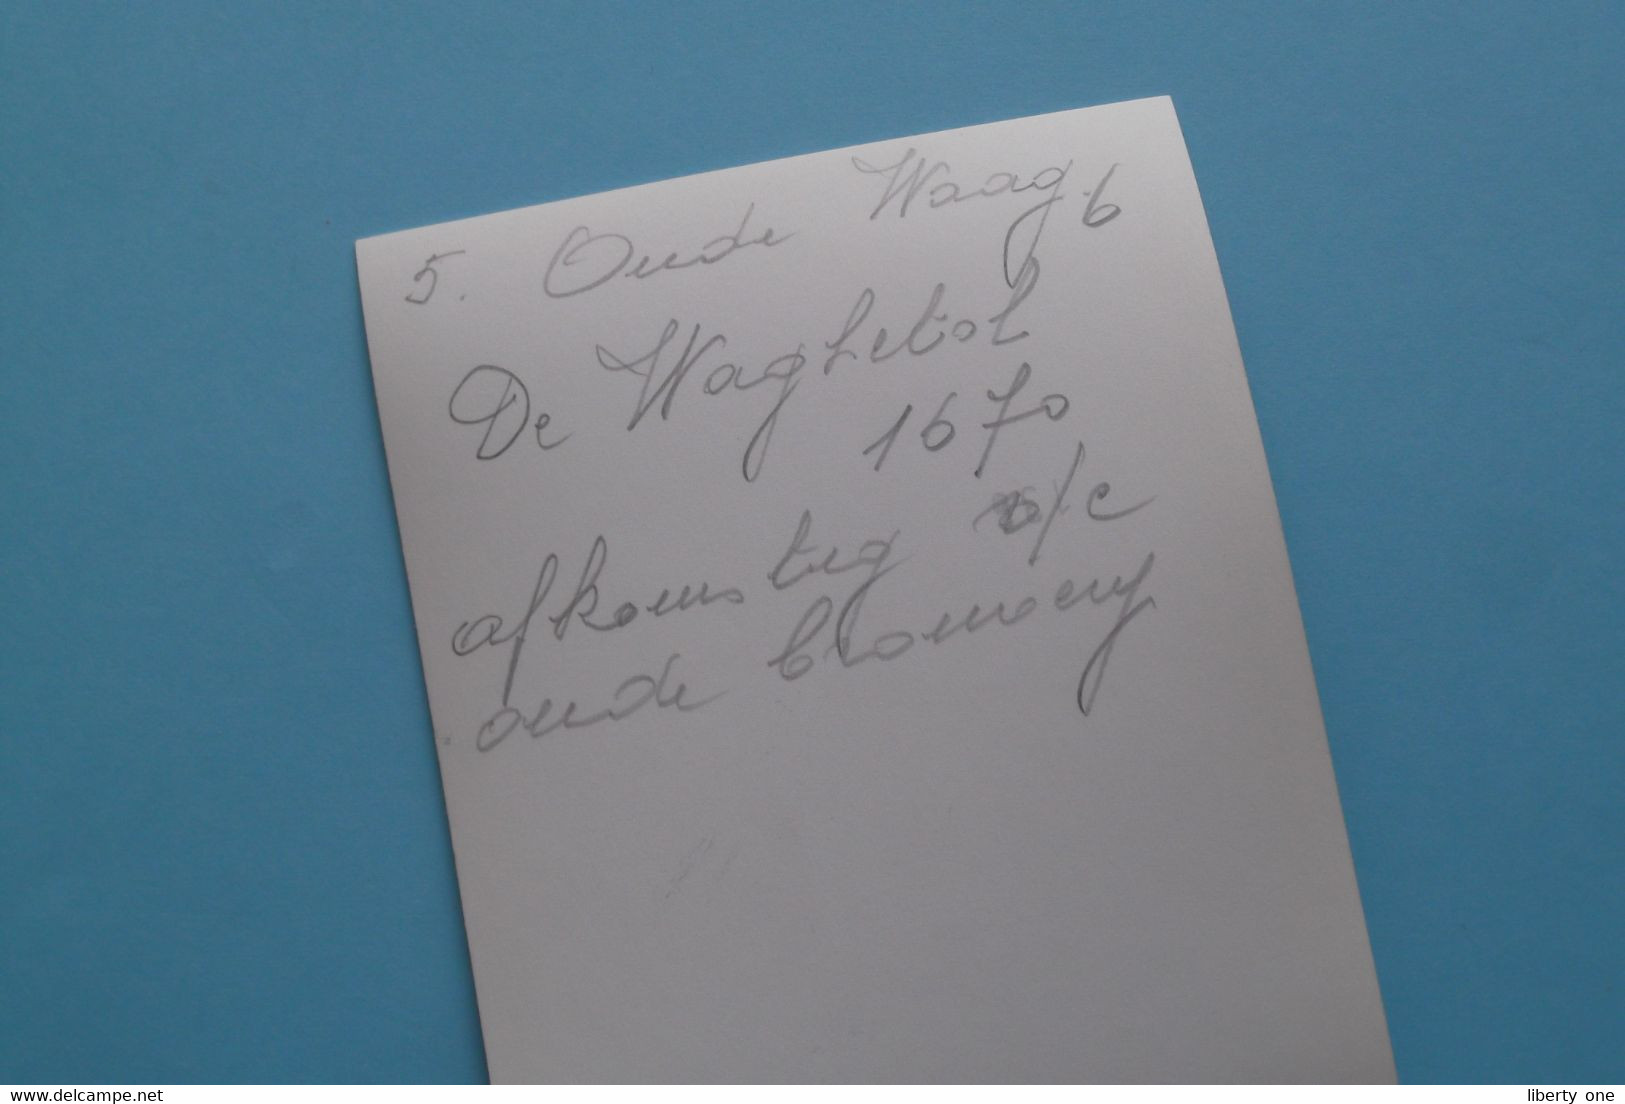 5. Oude Waag. 6
De Waghetol
1670
afkomstig o/e
oude brouwerij
delcampe.net
liberty one